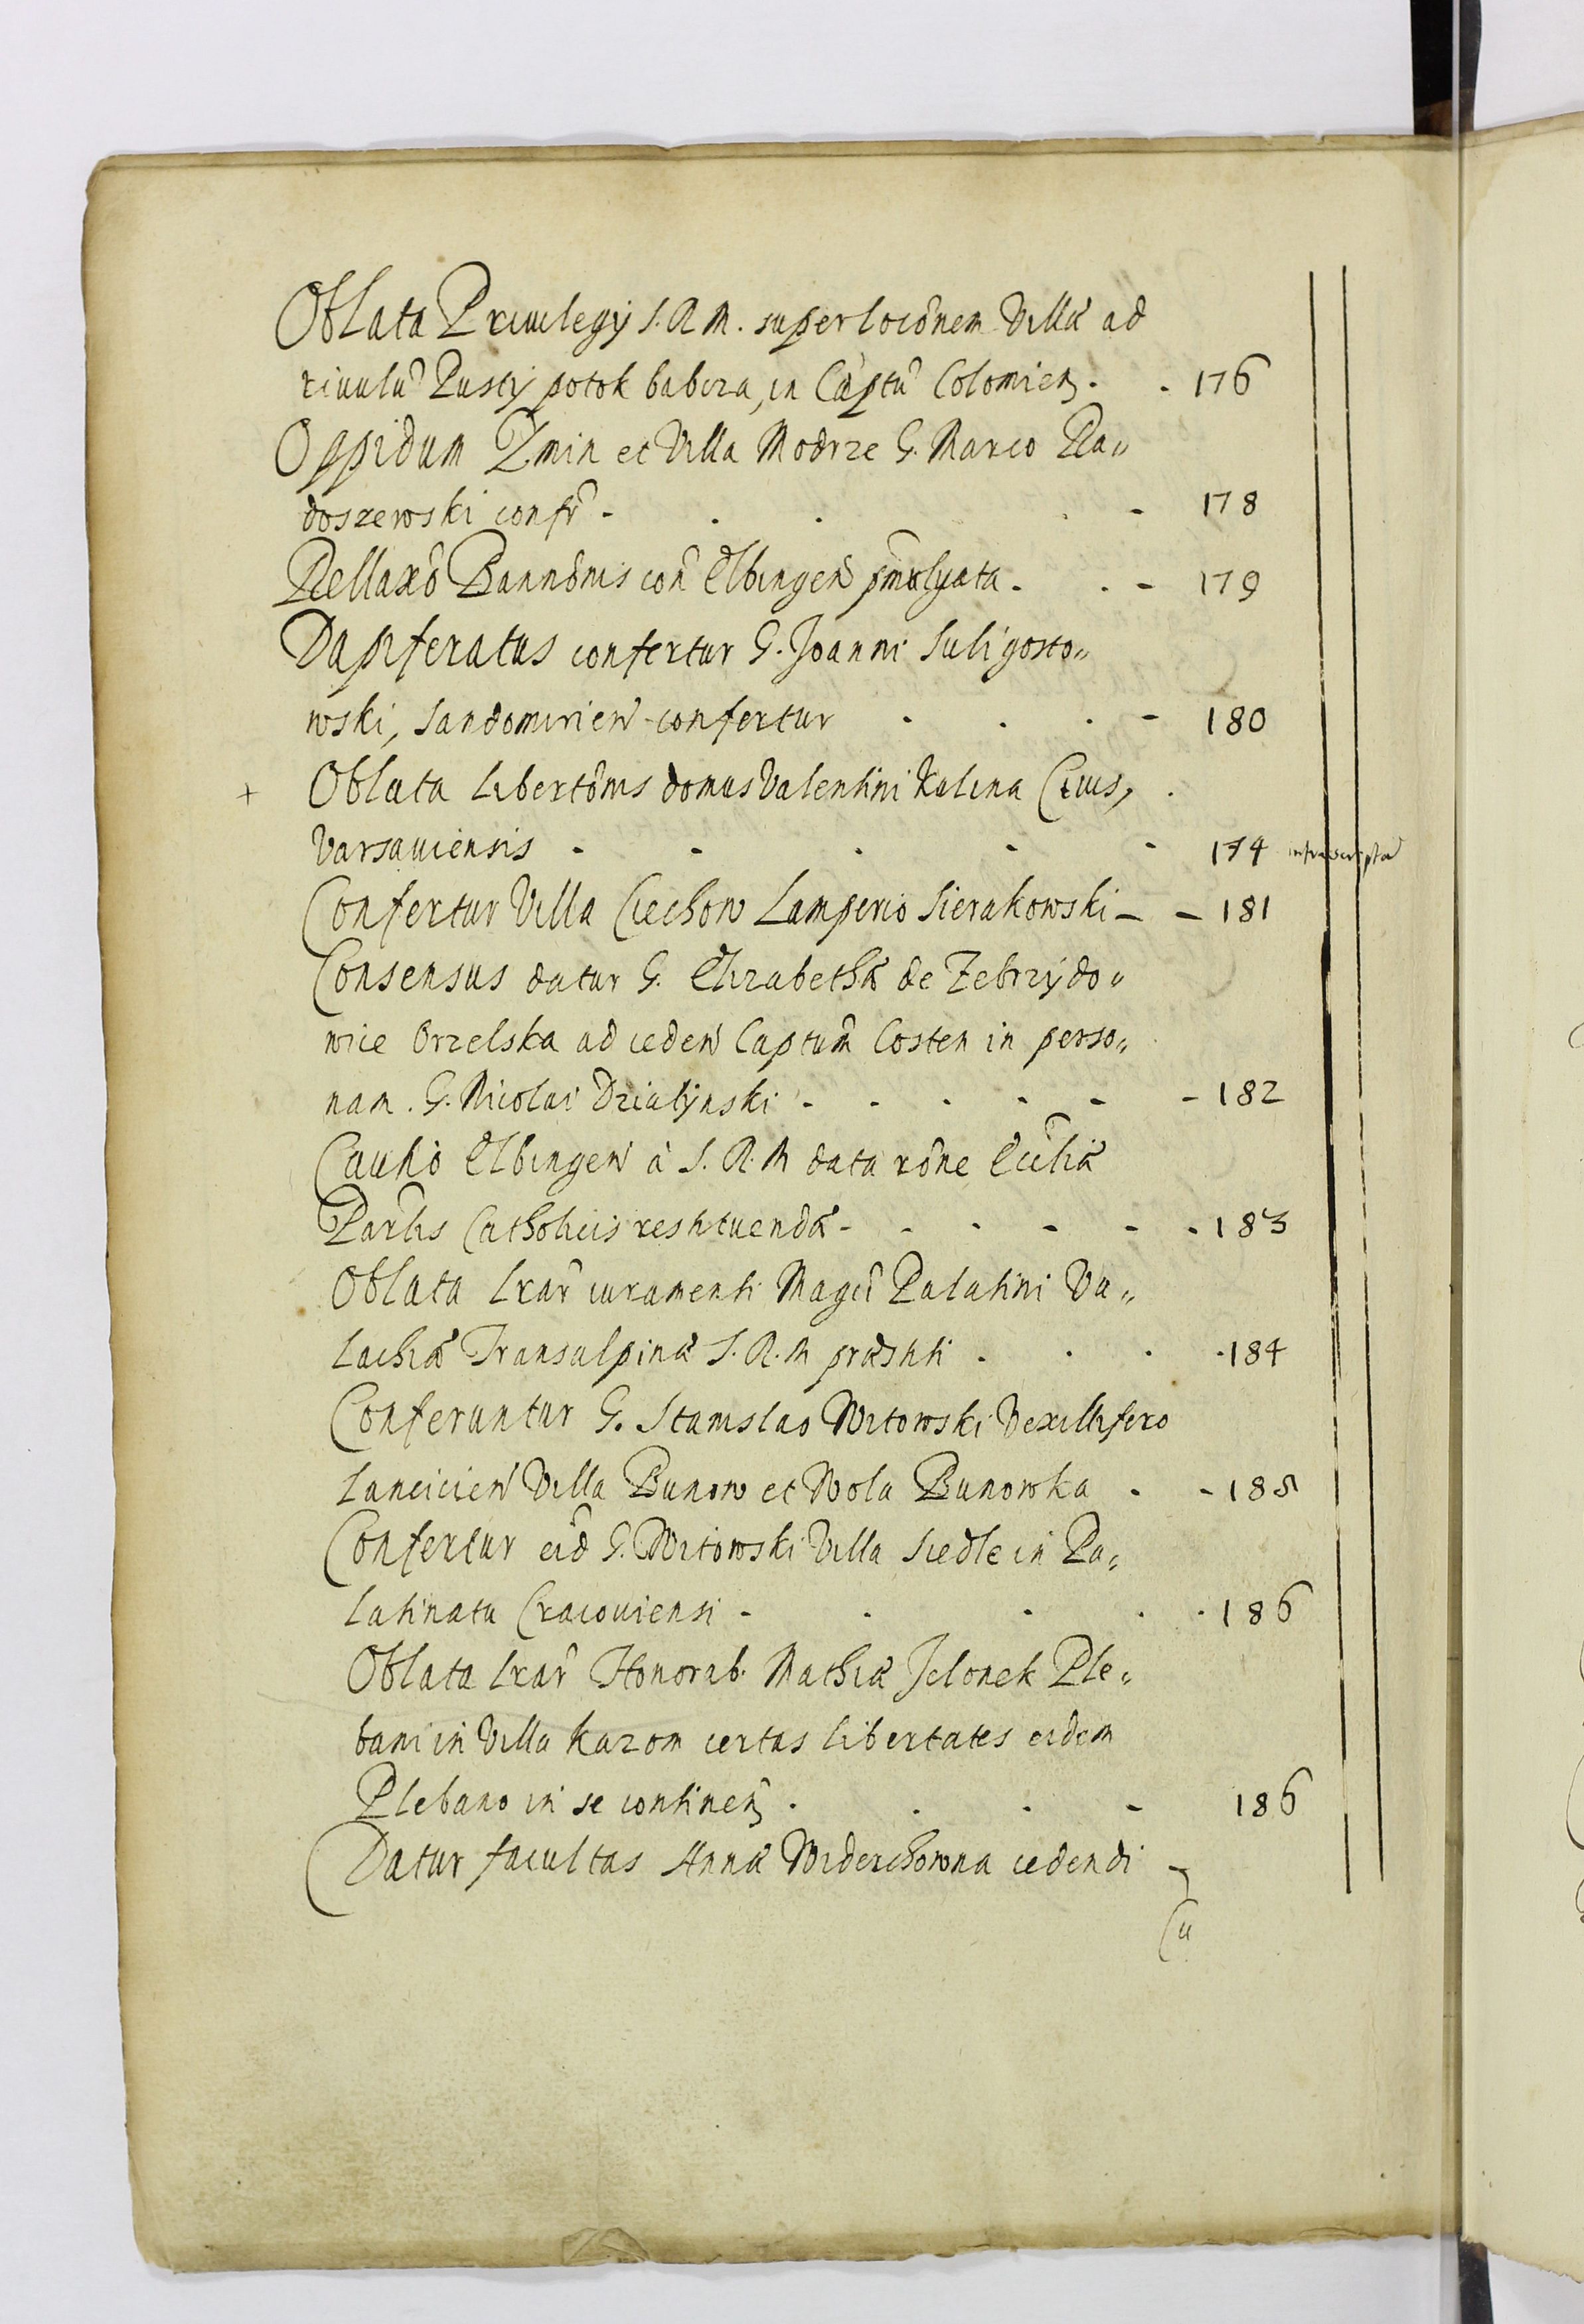 Oblata Priuilegij S. R. M. super loc̃onem Villæ ad
riuulũ Pusty potok babcza, in Cap̃tu Colomien̄ . . 176
Oppidum Zmin et Villa Modrze G. Marco Ra„
doszewski conf̃r - . . . - 178
Rellax̃o Bannõnis con̄ Elbingen̄ p̃mulgata . . - 179
Dapiferatus confertur G. Joanni Suligosto„
wski, Sandomirien̄ confertur . . . - 180
+ Oblata libertõnis domus Valentini Kalina Ciuis, .
Varsauiensis - - . - - 174 infrascripta
Confertur Villa Ciechow Lamperio Sierakowski - - 181
Consensus datur G. Elizabethæ de Zebrzydo„
wice Orzelska ad ceden̄ Captum̃ Costen in perso„
nam . G. Nicolai Dzialÿnski - - - - - - 182
Cautio Elbingen̄ à S. R. M data rõne Ecc̃liæ
Par̃lis Catholicis restituendæ - - - - - . 183
Oblata Lrar̃ iuramenti Magc̃i Palatini Va„
lachiæ Transalpinæ S. R. M præstiti . . . . 184
Conferuntur G. Stanislao Witowski Vexillifero
Lancicien̄ Villa Bunow et Wola Bunowka . - 185
Confertur eid̃ G. Witowski Villa Siedle in Pa„
latinatu Cracouiensi - . - . . 186
Oblata Lrar̃ Honorab. Mathiæ Jelonek Ple„
bani in Villa Kazom certas libertates eidem
Plebano in se continen̄ . . - - 186
Datur facultas Annæ Widerchowna cedendi -